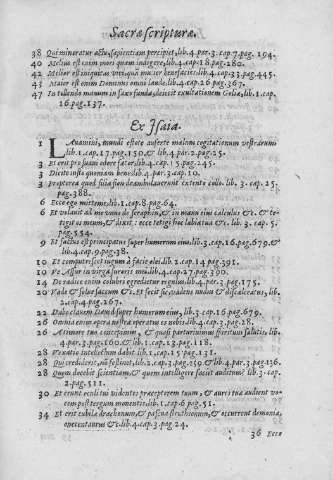 Sacræ scripturæ.
38 Qui minoratur actu, sapientiam percipiet, lib. 4. par. 3. cap. 7. pag. 194.
40 Melius est enim mori quàm indigere, lib. 4. cap. 18. pag. 280.
42 Melior est iniquitas viri, quã mulier benefaciẽs lib. 4. cap. 33. pag. 445.
43 Maior est enim Dominus omni laude, lib. 4. cap. 26. pag. 367.
47 In tollendo manum in saxo funda, deiecit exultationem Goliæ, lib. 1. cap.
16. pag. 137.
Ex Isaia.
1 Lavamini, mundi estote auferte malum cogitationum vestrarum
lib. 1. cap. 17. pag. 150. & lib. 4. par. 2. pag. 25.
3 Et erit pro suavi odore fœtor, lib. 4. cap. 15. pag. 245.
3 Dicite iusto quoniam bene, lib. 4. par. 3. cap. 10.
3 Propterea quod filiæ sion deambulaverunt extento collo. lib. 3. cap. 25.
pag. 388.
6 Ecce ego mitte me, lib. 1. cap. 8. pag. 64.
6 Et volavit ad me vnus de seraphin, & in manu eius calculus &c. & te-
tigit os meum, & dixit: ecce tetigi hoc labia tua &c. lib. 3. cap. 5.
pag. 554.
9 Et factus est principatus super humerum eius, lib. 3. cap. 16. pag. 679. &
lib. 4. cap. 9. pag. 38.
10 Et computrescet iugum à facie olei. lib. 2. cap. 14. pag. 391.
10 Væ Assur virga furoris mei, lib. 4. cap. 27. pag. 390.
14 De radice enim colubri egredietur regulus, lib. 4. par. 3. pag. 175.
20 Vade & solve saccum &c. Et fecit sic vadens nudus & discalceatus, lib.
2. cap. 4. pag. 267.
22 Dabo clavem David super humerum eius, lib. 3. cap. 16. pag. 679.
26 Omnia enim opera nostra operatus es nobis, lib. 4. cap. 3. pag. 28.
26 A timore tuo concepimus, & quasi parturivimus spiritum salutis, lib.
4. par. 3. pag. 160. & lib. 1. cap. 13. pag. 118.
28 Vexatio intellectum dabit. lib. 1. cap. 15. pag. 131.
28 Qui crediderit, nõ festinet, lib. 2. cap. 3. pag. 250 & lib. 4. par. 3. pag. 136.
28 Quem docebit scientiam, & quem intelligere faciet auditum? lib. 3. cap.
2. pag. 511.
30 Et erunt oculi tui videntes præceptorem tuum, & aures tuæ audient vo-
cem post tergum monentis. lib. 1. cap. 6. pag. 51.
34 Et erit cubile draconum, & pascua struthionum, & occurrent demonia,
onocentaurus &c. lib. 4. cap. 3. pag. 24.
36 Ecce